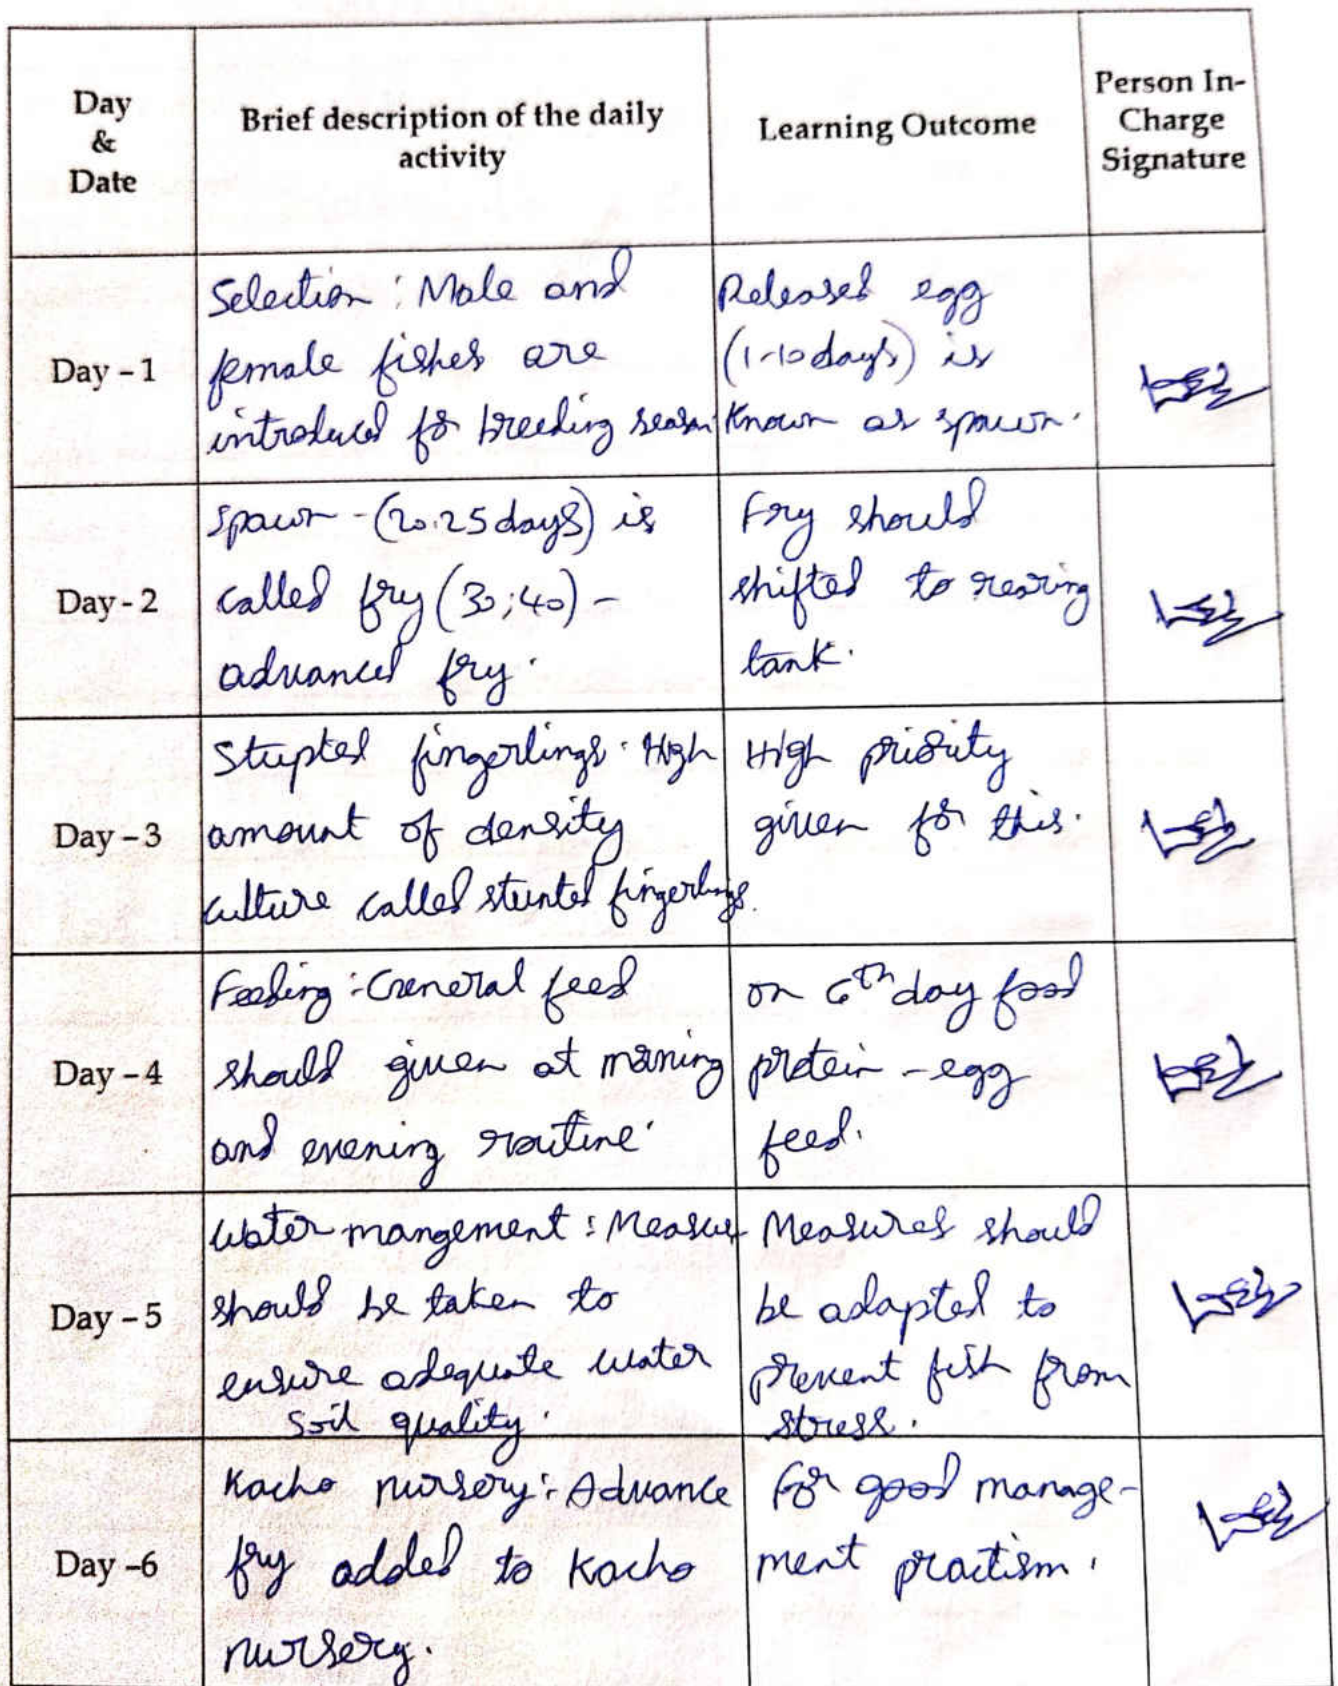 Day
&
Date
Brief description of the daily
activity
Learning Outcome
Person In-
Charge
Signature
Day – 1
Selection : Male and
female fishes are
introduced for breeding season
Released egg
(1-10 days) is
known as spawn.
Day - 2
spawn - (20.25 days) is
called fry (30;40) -
advanced fry.
Fry should
shifted to rearing
tank.
Day – 3
Stupted fingerlings. High
amount of density
culture called stunted fingerlings.
High priority
given for this.
Day – 4
Feeding : General feed
should given at morning
and evening routine.
on 6th day food
protein - egg
feed.
Day – 5
Water mangement : Measure
should be taken to
ensure adequate water
soil quality.
Measures should
be adapted to
prevent fish from
stress.
Day –6
Kacho nursery : Advance
fry added to Kacho
nursery.
For good manage-
ment practism.